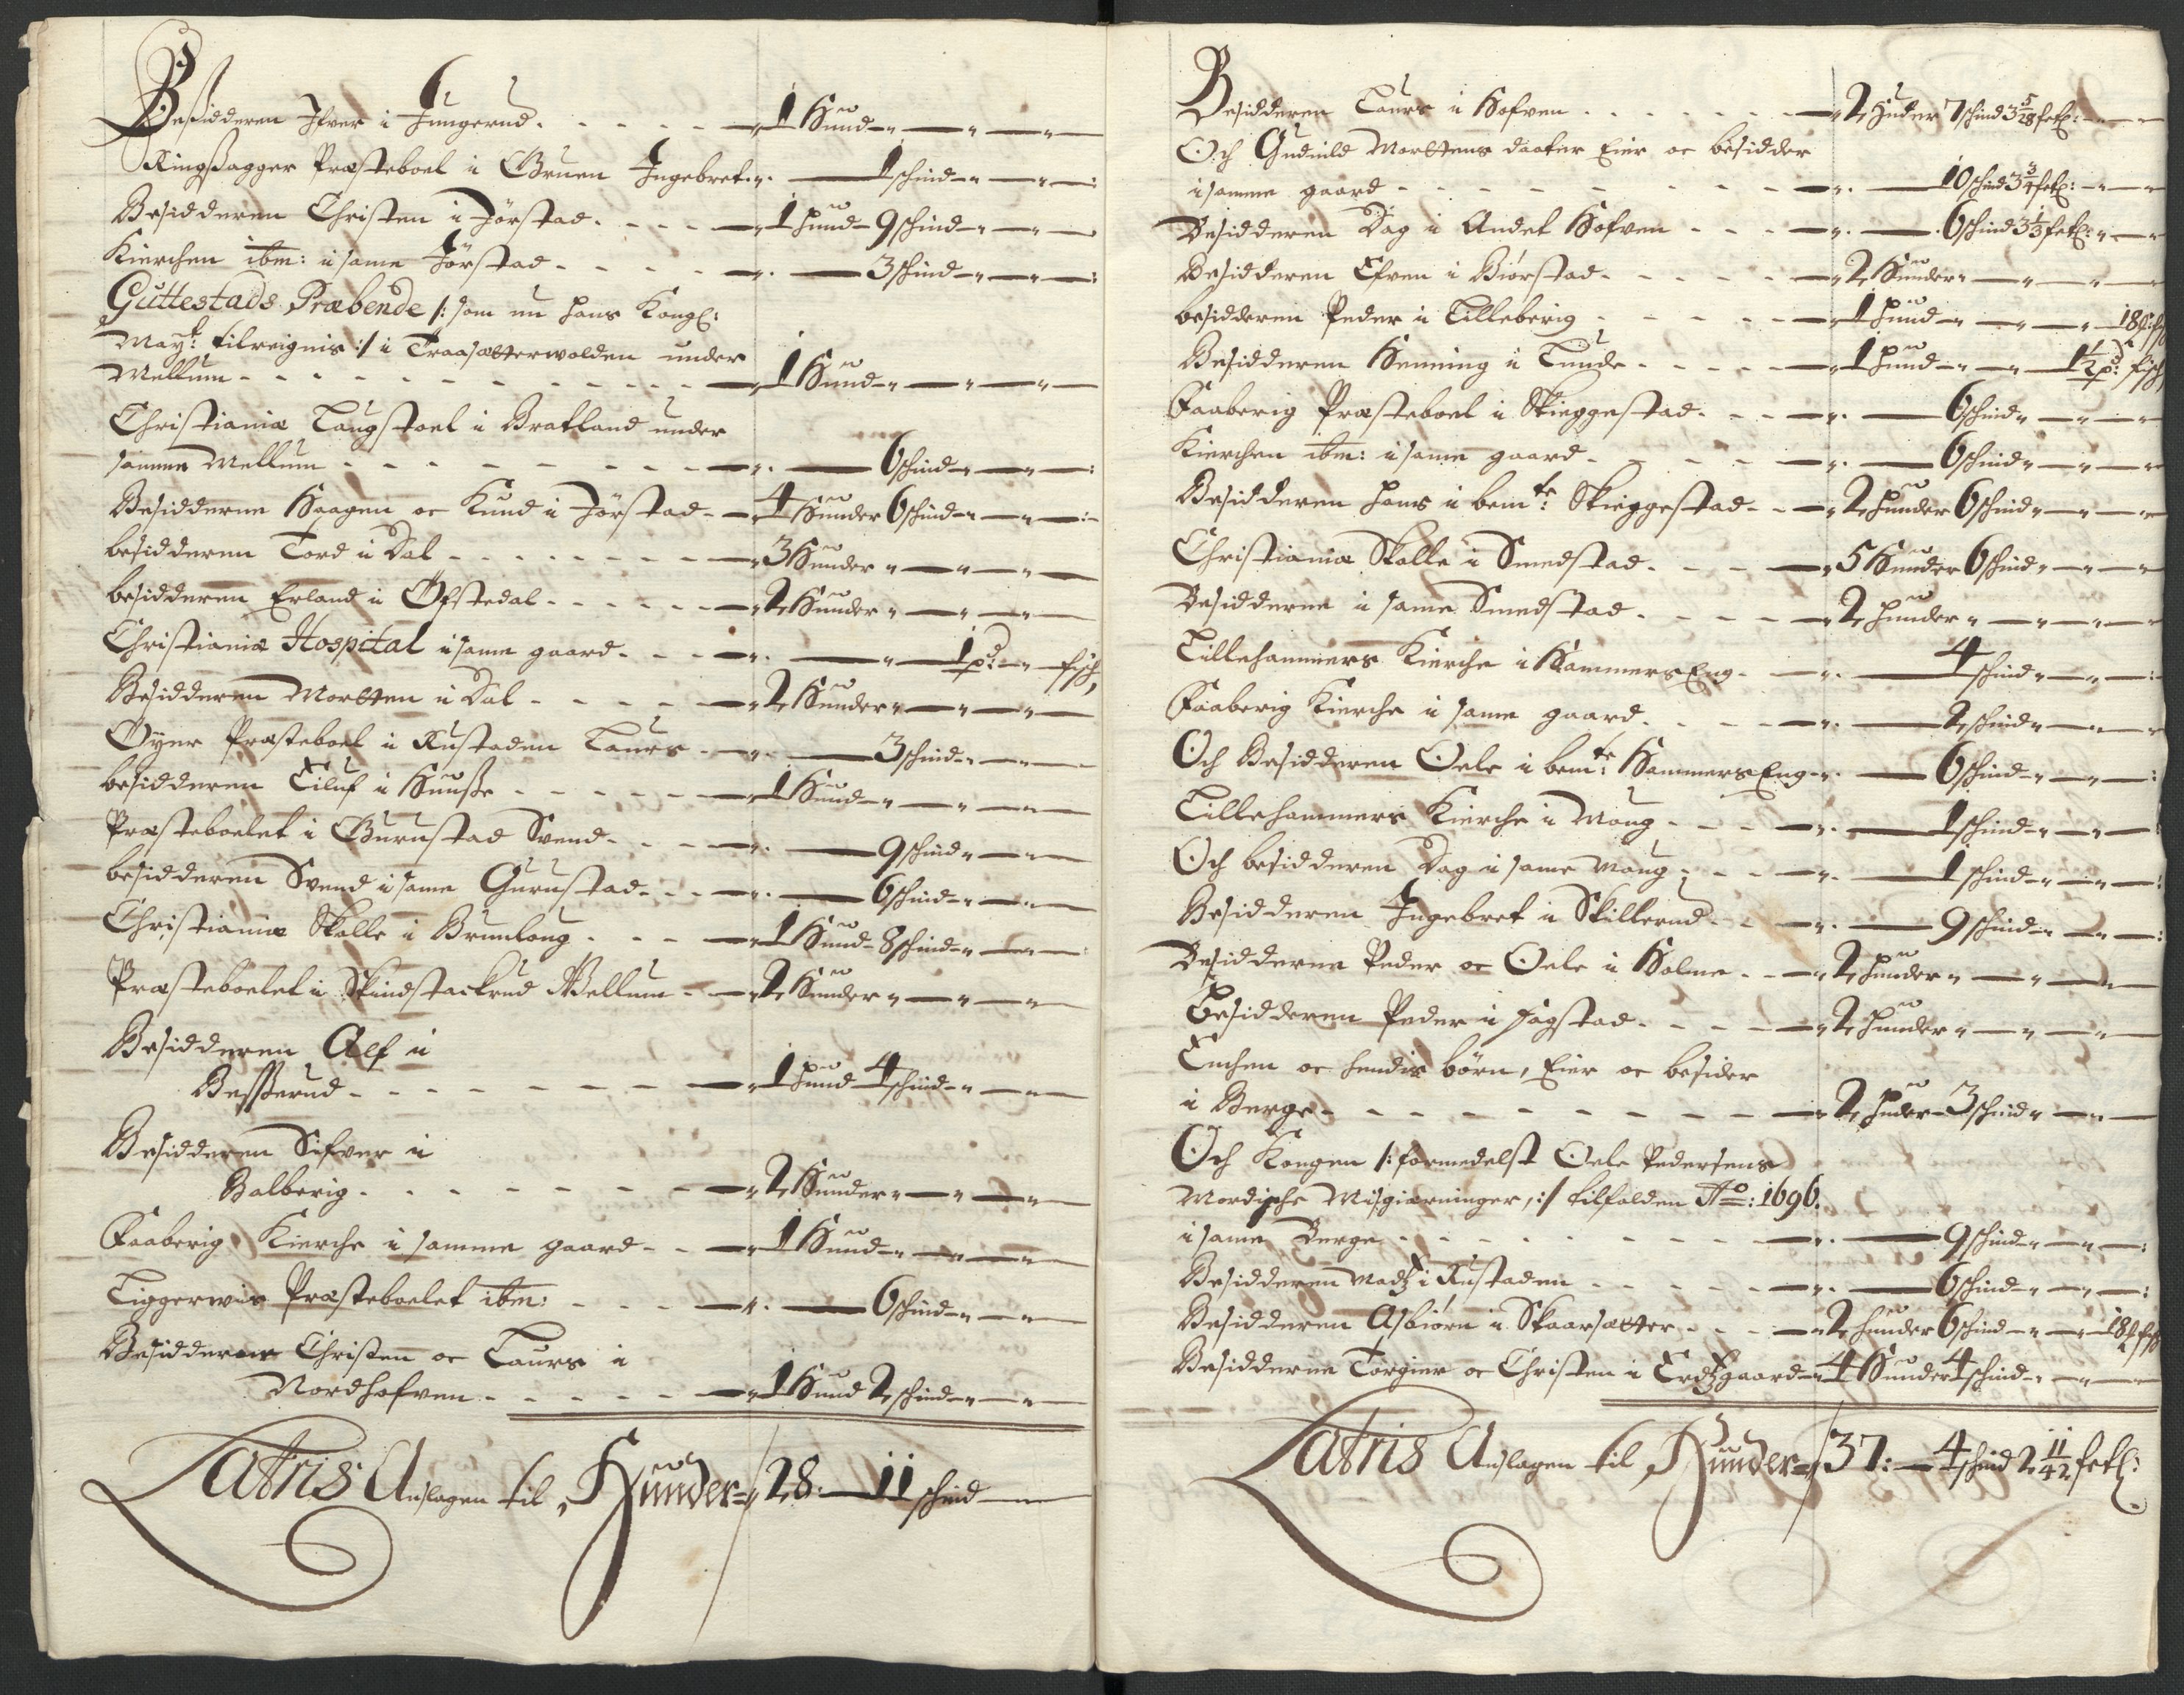 Besidderen Ifver i Jungerud - - - - 1 Hud
Ringsagger Præsteboel i Gruen Ingebret - 1 schind
Besidderen Christen i Jörstad - - - 1 hud 9 schind
Kierchen ibm: i same Jörstad - - - - 3 schind
Guttestads Præbende /: som nu hans Kongl:
Mayt: tilreignis :/ i Traasætterwolden under
Mellum - - - - 1 Hud
Christiania Laugstoel i Bratland under
samme Mellum - - - - 6 schind
Besidderne Haagen oc Knud i Jörstad - - 4 Hunder 6 schind
besidderen Tord i Dal - - - - 3 Hunder
besidderen Erland i Öfstedal - - - - 2 Hunder
Christianiæ Hospital i same gaard - - - 1 pd: fisch
Besidderen Mortten i Dal - - - - 2 Hunder
Öyer Præsteboel i Rustaden Laurs - - 3 schind
besidderen Eiluf i Huusse - - - - 1 Hud
Præsteboelet i Gurustad Svend - - - 9 schind
besidderen Svend i same Gurustad - - - 6 schind
Christianiæ Skolle i Brunlaug - - - 1 Hud 8 schind
Præsteboelet i Skindstackrud Mellum - - 2 Hunder
Besidderen Alf i
Besserud - - - - 1 hud 4 schind
Besidderen Sifver i
Balberig - - - - 2 Hunder
Faaberig Kierche i samme gaard - - 1 Hud
Tiggerwis Præsteboelet ibm: - - - 6 schind
Besidderne Christen oc Laurs i
Nordhofven - - - - 1 Hud 2 schind
Latris Anslagen til Hunder 28 - 11 schind
Besidderen Laurs i Hofven - - - - 2 huder 7 schind 3 5/28 fetl:
Och Gudnild Mortens daater Eier oc besidder
i samme gaard - - - - 10 schind 3 3/4 fetl:
Besidderen Dag i Andet Hofven - - - 6 schind 3 1/3 fetl:
Besidderen Efven i Biörstad - - - - 2 Hunder
besidderen Peder i Lilleberig - - - - 1 hud - 18 fisch
Besidderen Henning i Lunde - - - - 1 hud - 1 1/2 pd: fisch
Faaberig Præsteboel i Skieggestad - - - 6 schind
Kierchen ibm: i same gaard - - - - 6 schind
Besidderen hans i bemte: Skieggestad - - 2 hunder 6 schind
Christianiæ Skolle i Smedstad - - - 5 Hunder 6 schind
Besidderne i same Smedstad - - - - 2 hunder
Lillehammers Kierche i HammersEng - - 4 schind
Faaberig Kierche i same gaard - - - 2 schind
Och Besidderen Oele i bemte: HammersEng - 6 schind
Lillehammers Kierche i Moug - - - 1 schind
Och besidderen Dag i same Moug - - - 1 schind
Besidderen Ingebret i Skillerud - - - 9 schind
Besidderne Peder oc Oele i Holme - - 2 hunder
Besidderen Peder i Jagstad - - - - 2 hunder
Enchen oc hendis börn, Eier oc besider
i Berge - - - - 2 huder 3 schind
Och Kongen /: formedelst Oele Pedersens
Mordische Misgierninger, :/ tilfalden Ao: 1696.
i same Berge - - - - 9 schind
Besidderen Madtz i Rustaden - - - - 6 schind
Besidderen Asbiörn i Skaarsætter - - - 2 hunder 6 schind - 18 fisch
Besidderne Torgier oc Christen i Erdtzgaard - 4 Hunder 4 schind
Latris Anslagen til Hunder 37: - 4 schind 2 11/42 fetl: